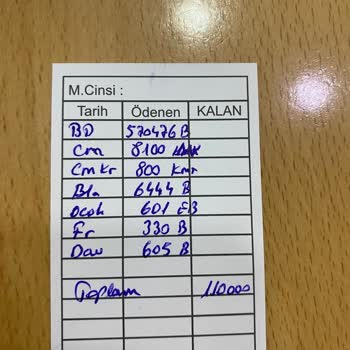 M.Cinsi :
Tarih Ödenen KALAN
BD 570476 B
Cm 8100
Cmkr 800 Kmr
Bla 6444 B
601
Fr 330 B
Dav 605 B
Toplam 110000